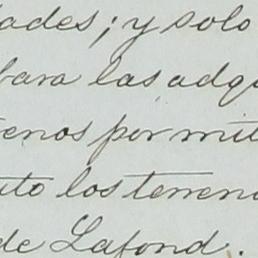 dades; y solo
para las adqu
renos por mit
uto los terreno
de Lafond.